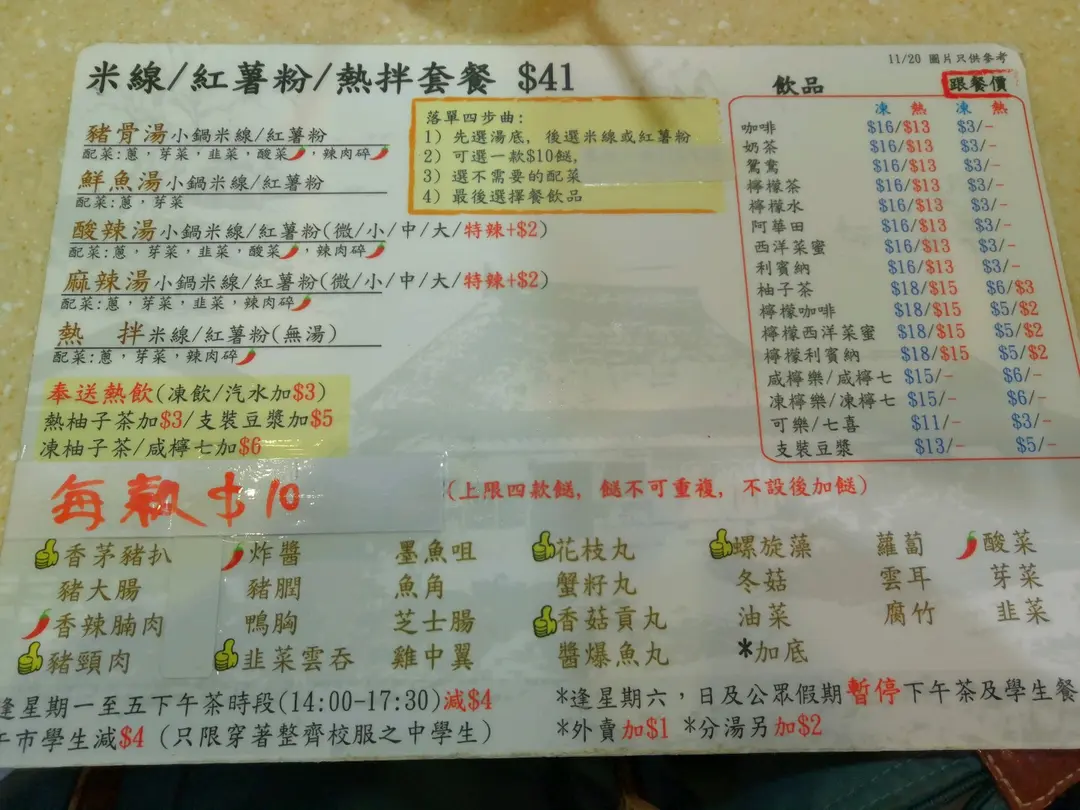 11/20 圖片只供參考
米線/紅薯粉/熱拌套餐 $41
豬骨湯小鍋米線/紅薯粉
配菜:蔥，芽菜，韭菜，酸菜，辣肉碎
鮮魚湯小鍋米線/紅薯粉
配菜:蔥，芽菜
酸辣湯小鍋米線/紅薯粉(微/小/中/大/特辣+$2)
配菜:蔥，芽菜，韭菜，酸菜，辣肉碎
麻辣湯小鍋米線/紅薯粉(微/小/中/大/特辣+$2)
配菜:蔥，芽菜，韭菜，辣肉碎
熱 拌米線/紅薯粉(無湯)
配菜:蔥，芽菜，辣肉碎
落單四步曲：
1) 先選湯底，後選米線或紅薯粉
2) 可選一款$10餸，
3) 選不需要的配菜
4) 最後選擇餐飲品
奉送熱飲(凍飲/汽水加$3)
熱柚子茶加$3/支裝豆漿加$5
凍柚子茶/咸檸七加$6
飲品 跟餐價
凍 熱 凍 熱
咖啡 $16/$13 $3/-
奶茶 $16/$13 $3/-
鴛鴦 $16/$13 $3/-
檸檬茶 $16/$13 $3/-
檸檬水 $16/$13 $3/-
阿華田 $16/$13 $3/-
西洋菜蜜 $16/$13 $3/-
利賓納 $16/$13 $3/-
柚子茶 $18/$15 $6/$3
檸檬咖啡 $18/$15 $5/$2
檸檬西洋菜蜜 $18/$15 $5/$2
檸檬利賓納 $18/$15 $5/$2
咸檸樂/咸檸七 $15/- $6/-
凍檸樂/凍檸七 $15/- $6/-
可樂/七喜 $11/- $3/-
支裝豆漿 $13/- $5/-
每款 $10 (上限四款餸，餸不可重複，不設後加餸)
香茅豬扒 炸醬 墨魚咀 花枝丸 螺旋藻 蘿蔔 酸菜
豬大腸 豬膶 魚角 蟹籽丸 冬菇 雲耳 芽菜
香辣腩肉 鴨胸 芝士腸 香菇貢丸 油菜 腐竹 韭菜
豬頸肉 韭菜雲吞 雞中翼 醬爆魚丸 *加底
逢星期一至五下午茶時段(14:00-17:30)減$4
午市學生減$4 (只限穿著整齊校服之中學生)
*逢星期六，日及公眾假期暫停下午茶及學生餐
*外賣加$1 *分湯另加$2